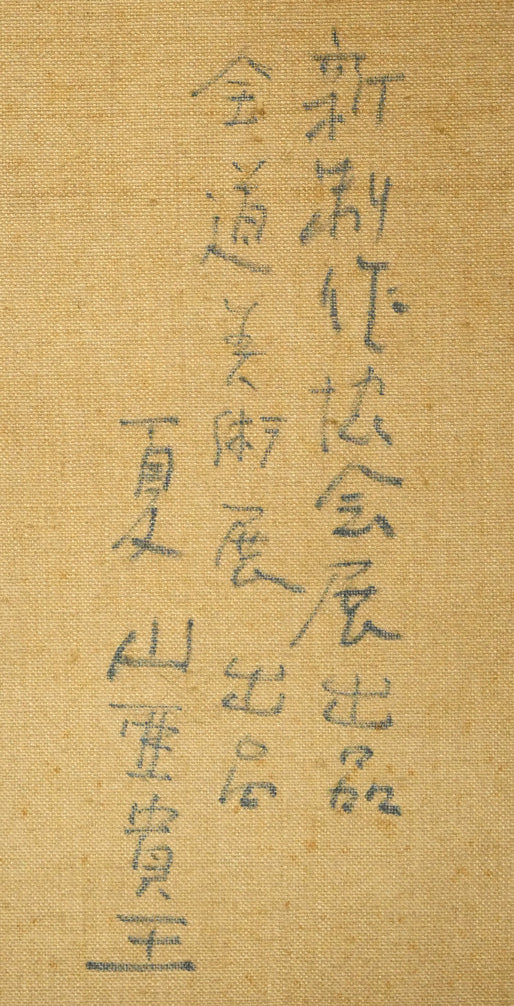 新制作協会展出品
全道美術展出品
夏山亜貴王